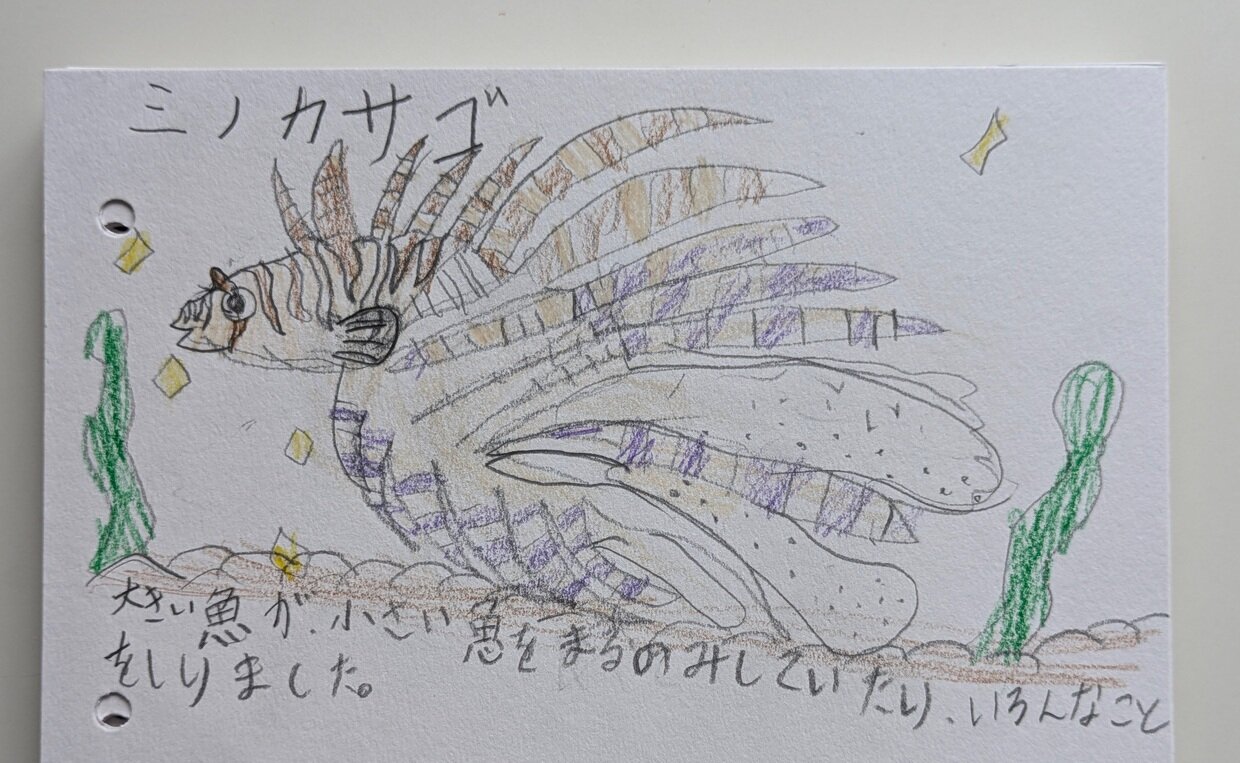 ミノカサゴ
大きい魚が、小さい魚をまるのみしていたり、いろんなこと
をしりました。